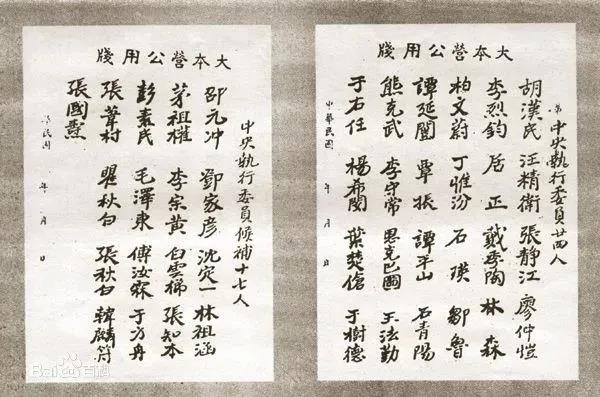 大本營公用牋
中央執行委員廿四人
胡漢民 汪精衛 張靜江 廖仲愷
李烈鈞 居正 戴季陶 林森
柏文蔚 丁惟汾 石瑛 鄒魯
譚延闓 覃振 譚平山 石青陽
熊克武 李守常 恩克巴圖 王法勤
于右任 楊希閔 葉楚傖 于樹德
中華民國 年 月 日
大本營公用牋
中央執行委員候補十七人
邵元冲 鄧家彥 沈定一 林祖涵
茅祖權 李宗黃 白雲梯 張知本
彭素民 毛澤東 傅汝霖 于方舟
張葦村 瞿秋白 張秋白 韓麟符
張國燾
民國 年 月 日
Bai百科